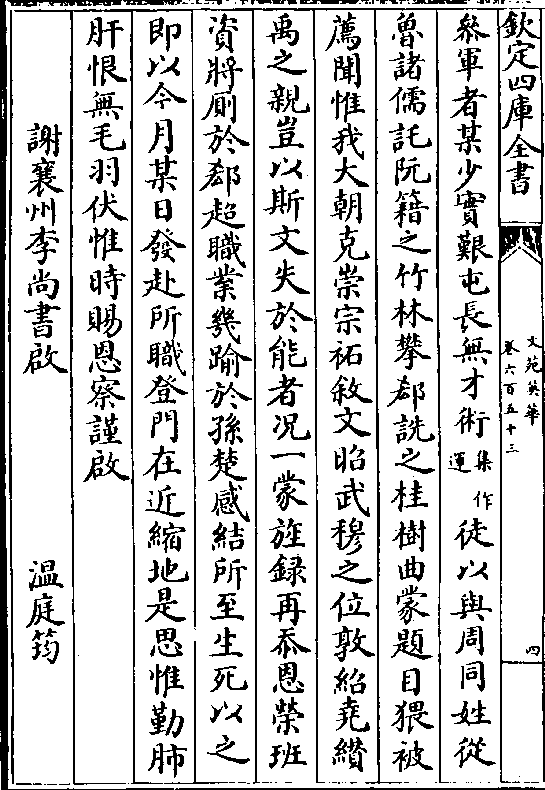 欽定四庫全書
文苑英華
卷六百五十三
四
叅軍者某少實艱屯長無才術集作運徒以與周同姓從
魯諸儒託阮籍之竹林攀郄詵之桂樹曲蒙題目猥被
薦聞惟我大朝克崇宗祏敘文昭武穆之位敦紹堯纘
禹之親豈以斯文失於能者况一蒙旌録再忝恩榮班
資將厠於郄超職業幾踰於孫楚感結所至生死以之
即以今月某日發赴所職登門在近縮地是思惟勤肺
肝恨無毛羽伏惟時賜恩察謹啟
謝襄州李尚書啟　　溫庭筠